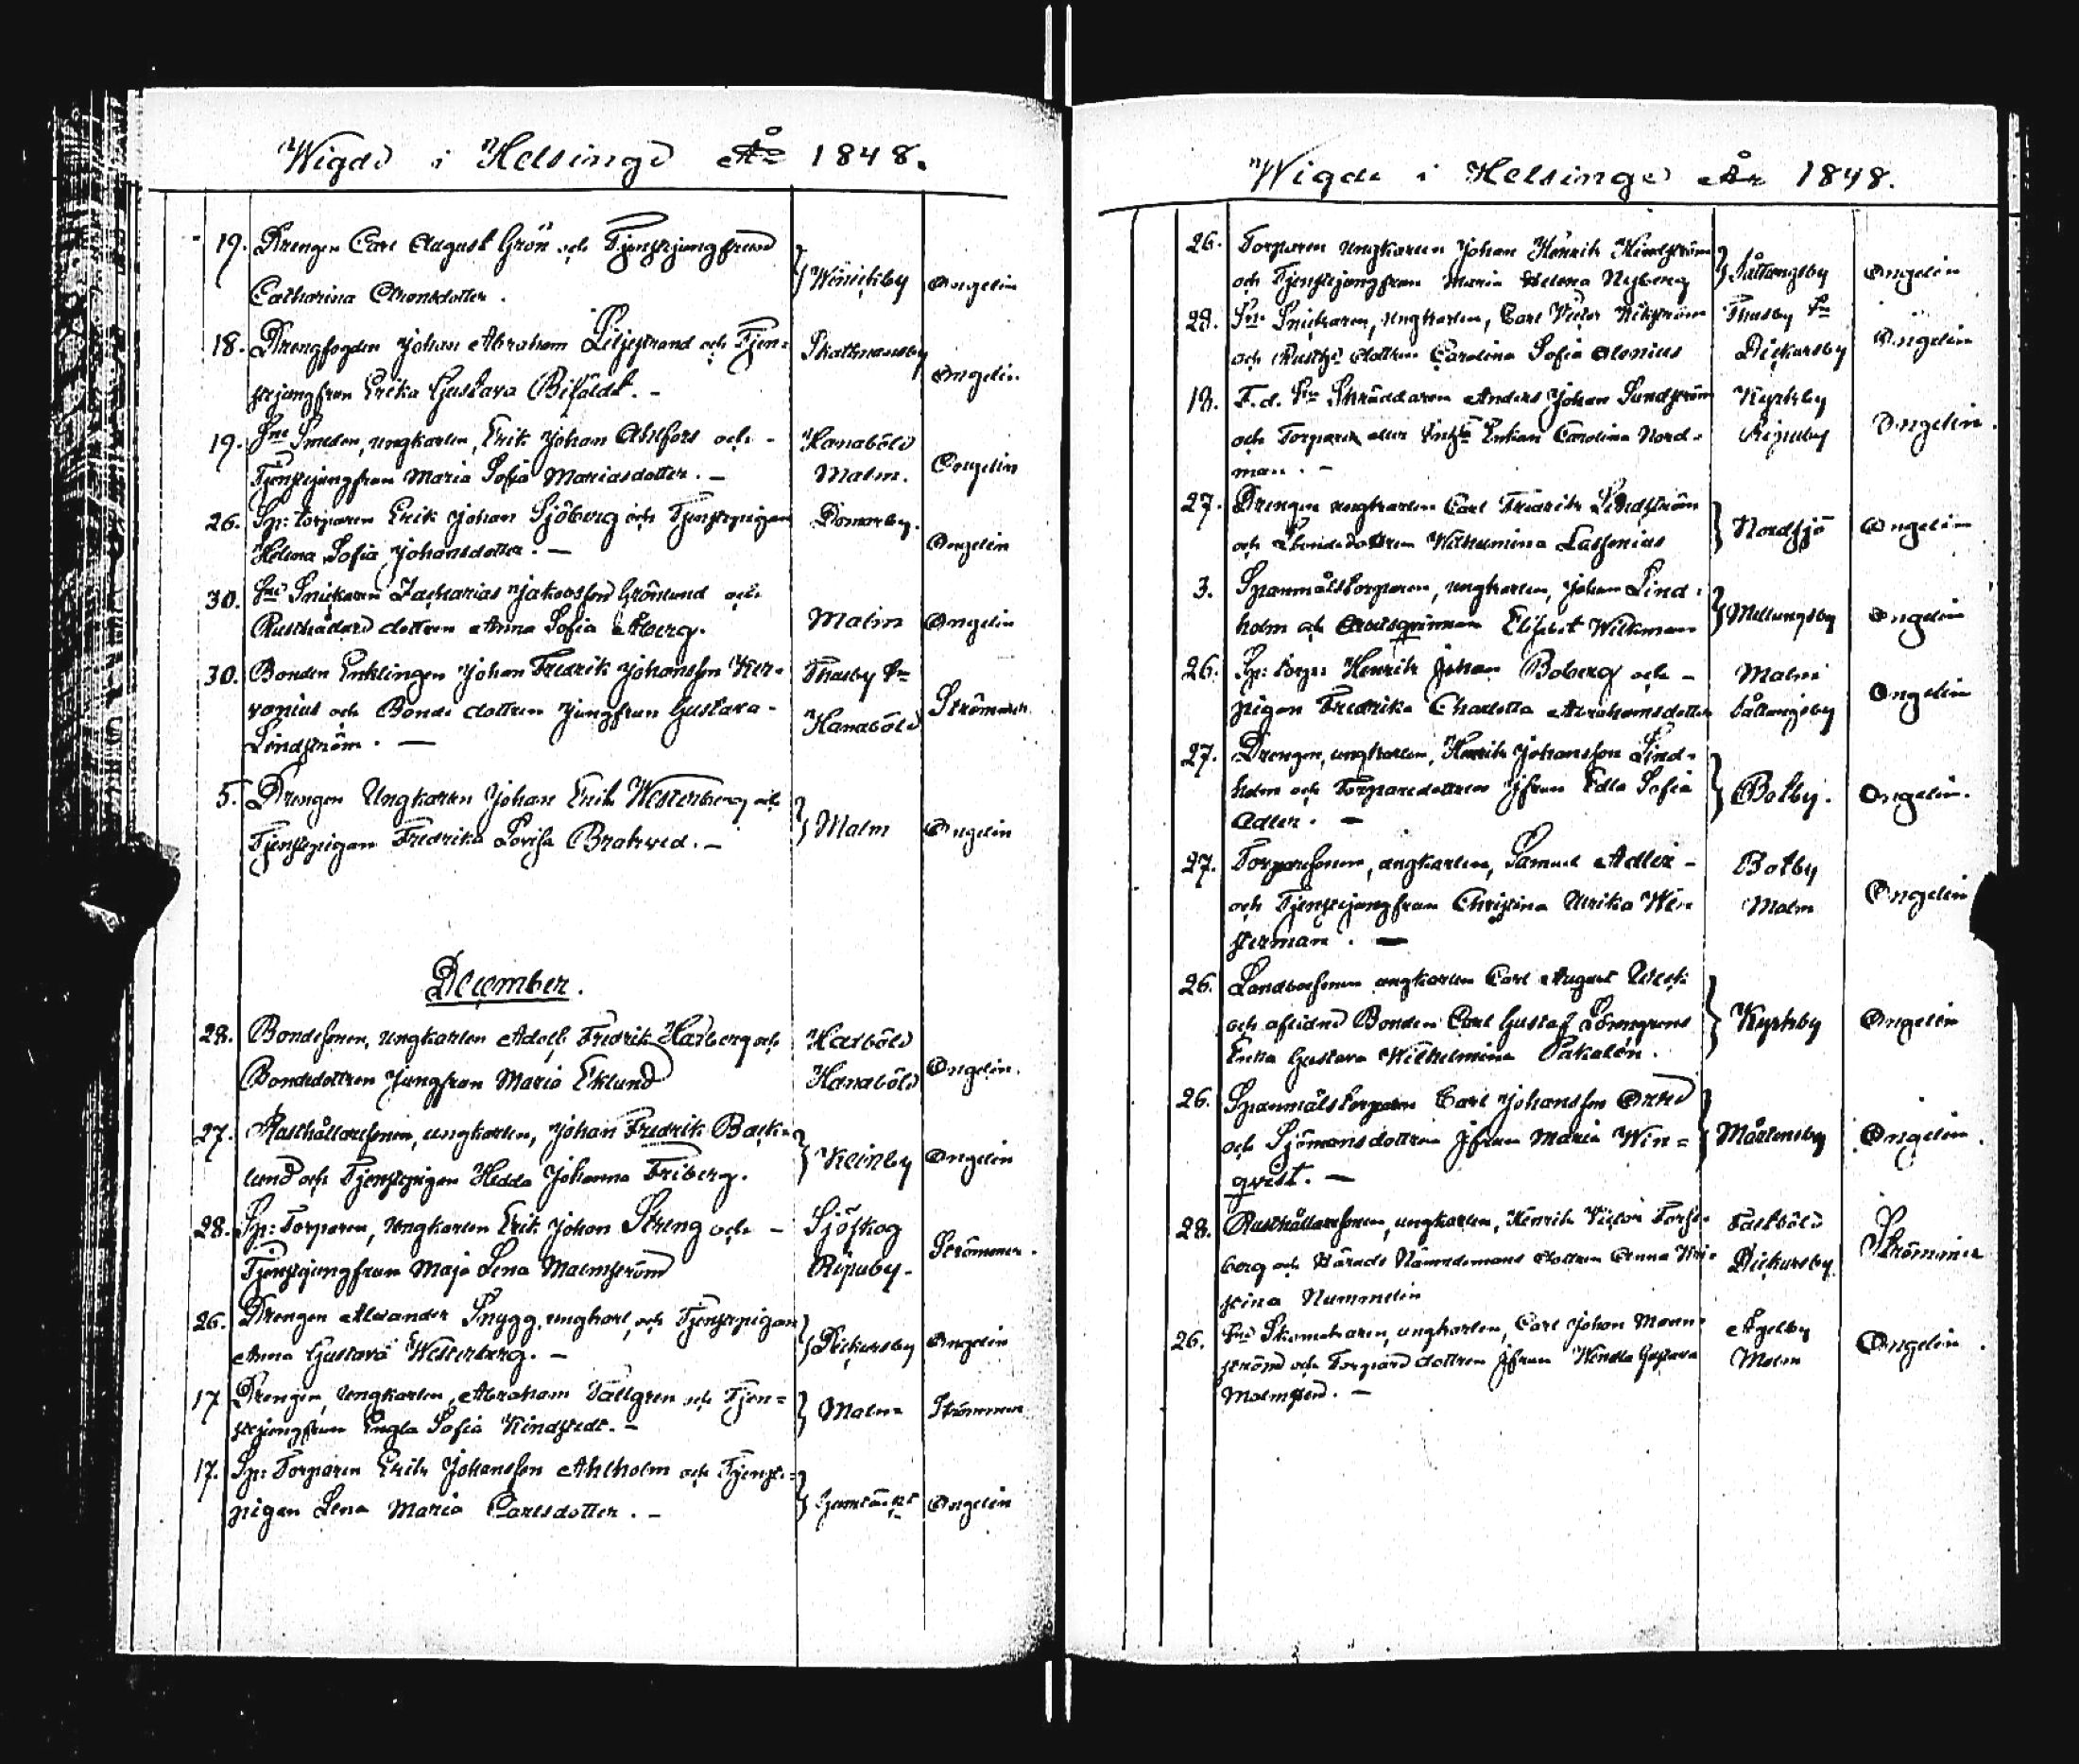 Wigde i Helsinge År 1848.
19. Drengen Carl August Grön och Tjenstejungfrun
Catharina Aronsdotter. Winickby Ongelin
18. Drengfogden Johan Abraham Liljestrand och Tjen=
stejungfrun Erika Gustava Bifäldt. - Skattmansby Ongelin
19. Sne Smeden, ungkarlen, Erik Johan Ahlfors och - Hanaböle
Tjenstejungfrun Maria Sofia Mariasdotter. - Malm. Ongelin
26. Sp: torparen Erik Johan Sjöberg och Tjenstepigan Domarby.
Helena Sofia Johansdotter. - Ongelin
30. Sne Snickaren Zacharias Jakobsson Grönlund och
Rusthållare dottren Anna Sofia Åberg. Malm Ongelin
30. Bonden Enklingen Johan Fredrik Johansson Her=
vonius och Bonde dottren Jungfrun Gustava - Hanaböle Strömmer
Lindström. -
5. Drengen Ungkarlen Johan Erik Westerberg och
Tjenstepigan Fredrika Lovisa Brahved. - Malm Ongelin
December.
28. Bondesonen, ungkarlen Adolf Fredrik Haxberg och Haxböle
Bondedottren Jungfrun Maria Eklund Hanaböle Ongelin.
27. Rusthållaresonen, ungkarlen, Johan Fredrik Back=
lund och Tjenstepigan Hedda Johanna Friberg. Ongelin
28. Sp: Torparen, ungkarlen Erik Johan Streng och - Sjöskog
Tjenstejungfrun Maja Lena Malmström Ripuby. Strömmer.
26. Drengen Alexander Snygg, ungkarl, och Tjenstepigan
Anna Gustava Westerberg. - Dickursby Ongelin
17 Drengen, ungkarlen, Abraham Tallgren och Tjen=
stejungfrun Engla Sofia Kindstedt. - Malm Strömmer
17. Sp: Torparen Erik Johansson Ahlholm och Tjenste=
pigan Lena Maria Carlsdotter. - Ongelin
Wigde i Helsinge År 1848.
26. Torparen ungkarlen Johan Henrik
och Tjenstejungfrun Maria Helena Nyberg Såttungsby Ongelin
28. Sne Snickaren, ungkarlen, Carl Victor Wikström
och dottren Carolina Sofia Alenius Dickursby Ongelin
18. F.d. Sne Skräddaren Anders Johan Sundström Kyrkby
och Torpare Enkan Carolina Nord= Ripuby Ongelin.
man. -
27. Drengen ungkarlen Carl Fredrik Lindström
och dottren Wilhelmina Lassenius Nordsjö Ongelin
3. Spanmålstorparen, ungkarlen, Johan Lind=
holm och Elisabet Wickman Mellungsby Ongelin
26. Sp: torp: Henrik Johan Boberg och - Malm
pigan Fredrika Charlotta Abrahamsdotter Såttungsby Ongelin
27. Drengen, ungkarlen, Henrik Johansson Lind=
holm och Torparedottren Jfrun Edla Sofia Botby. Ongelin.
Adler. -
27. Torparesonen, ungkarlen, Samuel Adler - Botby
och Tjenstejungfrun Christina Ulrika Wen= Malm Ongelin
sterman. -
26. Landbosonen ungkarlen Carl August
och aflidne Bonden Carl Gustaf Lövengrens Kyrkby Ongelin
Enka Gustava Wilhelmina Pakalén.
26. Spanmålstorparen Carl Johansson
och Sjömansdottren Jfrun Maria Win= Mårtensby Ongelin.
qvist. -
28. Rusthållaresonen, ungkarlen, Henrik Victor Forss= Fastböle
berg och Härads Nämndemans dottren Anna Kri= Dickursby Strömmer
stina Nummelin
26. Sne Skomakaren, ungkarlen, Carl Johan Maun=
ström och Torpare dottren Jfrun Wendla Gustava Malm Ongelin.
Malmsten. -